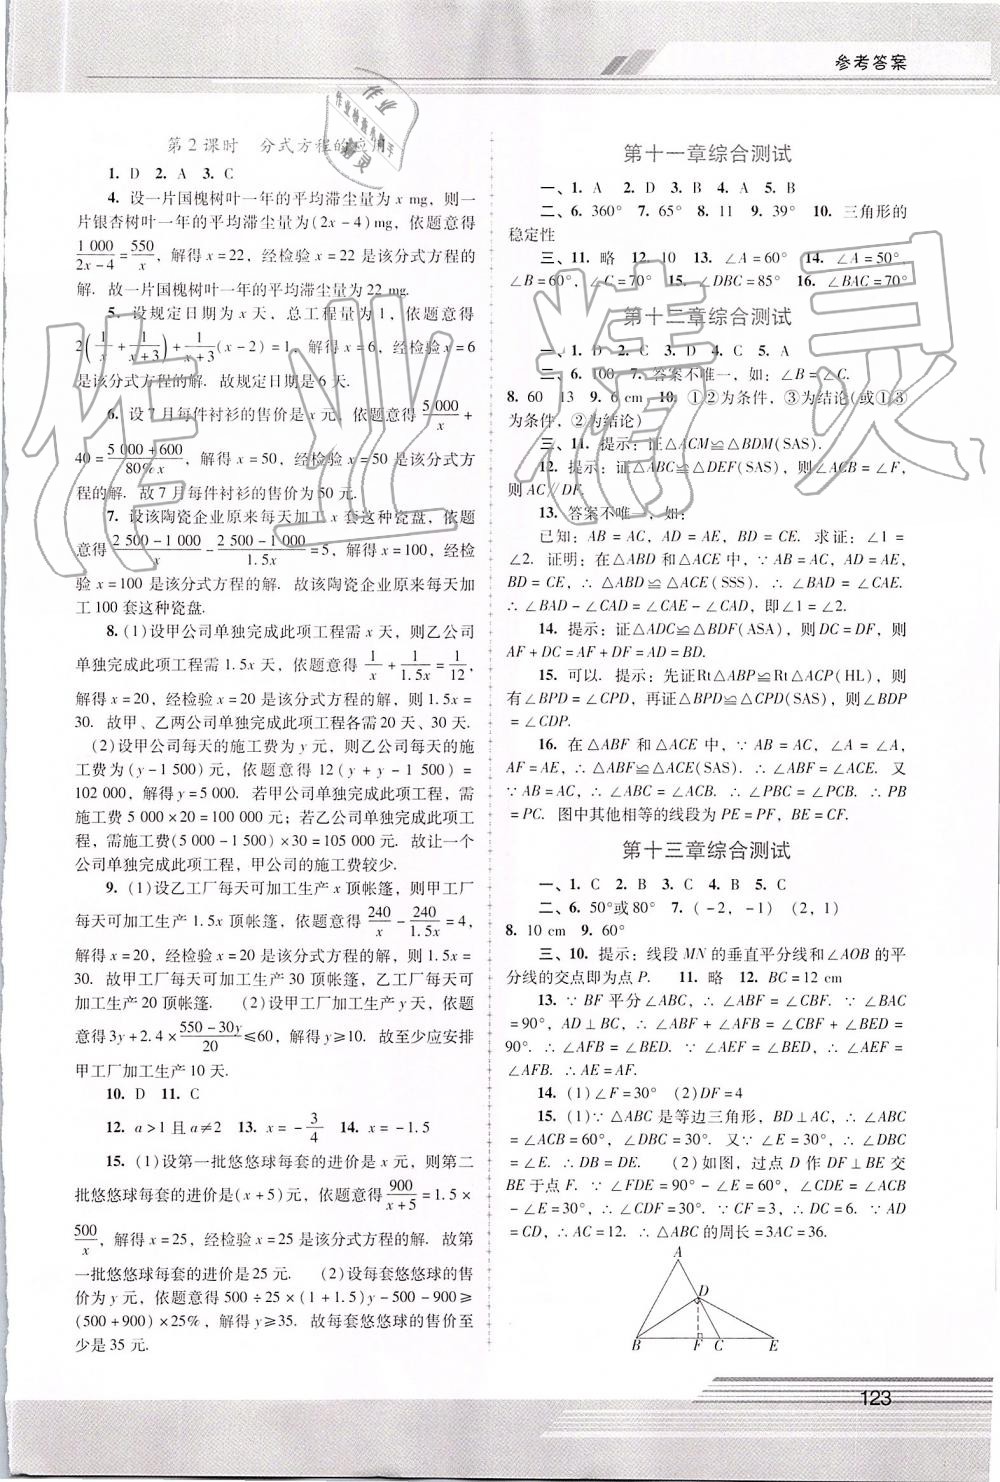 参考答案
第2课时　分式方程的应用
1. D　2. A　3. C
4. 设一片国槐树叶一年的平均滞尘量为 x mg, 则一
片银杏树叶一年的平均滞尘量为(2x－4)mg, 依题意得
1 000/(2x－4)=550/x, 解得 x=22, 经检验 x=22 是该分式方程的
解. 故一片国槐树叶一年的平均滞尘量为 22 mg.
5. 设规定日期为 x 天, 总工程量为 1, 依题意得
2(1/x+1/(x+3))+1/(x+3)(x－2)=1, 解得 x=6, 经检验 x=6
是该分式方程的解. 故规定日期是 6 天.
6. 设 7 月每件衬衫的售价是 x 元, 依题意得 5 000/x+
40=(5 000+600)/(80%x), 解得 x=50, 经检验 x=50 是该分式方
程的解. 故 7 月每件衬衫的售价为 50 元.
7. 设该陶瓷企业原来每天加工 x 套这种瓷盘, 依题
意得(2 500－1 000)/x－(2 500－1 000)/(1.5x)=5, 解得 x=100, 经检
验 x=100 是该分式方程的解. 故该陶瓷企业原来每天加
工 100 套这种瓷盘.
8. (1)设甲公司单独完成此项工程需 x 天, 则乙公司
单独完成此项工程需 1.5x 天, 依题意得 1/x+1/(1.5x)=1/12,
解得 x=20, 经检验 x=20 是该分式方程的解, 则 1.5x=
30. 故甲、乙两公司单独完成此项工程各需 20 天、30 天.
(2)设甲公司每天的施工费为 y 元, 则乙公司每天的施
工费为(y－1 500)元, 依题意得 12(y+y－1 500)=
102 000, 解得 y=5 000. 若甲公司单独完成此项工程, 需
施工费 5 000×20=100 000 元; 若乙公司单独完成此项工
程, 需施工费(5 000－1 500)×30=105 000 元. 故让一个
公司单独完成此项工程, 甲公司的施工费较少.
9. (1)设乙工厂每天可加工生产 x 顶帐篷, 则甲工厂
每天可加工生产 1.5x 顶帐篷, 依题意得 240/x－240/(1.5x)=4,
解得 x=20, 经检验 x=20 是该分式方程的解, 则 1.5x=
30. 故甲工厂每天可加工生产 30 顶帐篷, 乙工厂每天可
加工生产 20 顶帐篷.　(2)设甲工厂加工生产 y 天, 依题
意得 3y+2.4×(550－30y)/20≤60, 解得 y≥10. 故至少应安排
甲工厂加工生产 10 天.
10. D　11. C
12. a>1 且 a≠2　13. x=－3/4　14. x=－1.5
15. (1)设第一批悠悠球每套的进价是 x 元, 则第二
批悠悠球每套的进价是(x+5)元, 依题意得 900/(x+5)=1.5×
500/x, 解得 x=25, 经检验 x=25 是该分式方程的解. 故第
一批悠悠球每套的进价是 25 元.　(2)设每套悠悠球的售
价为 y 元, 依题意得 500÷25×(1+1.5)y－500－900≥
(500+900)×25%, 解得 y≥35. 故每套悠悠球的售价至
少是 35 元.
第十一章综合测试
一、1. A　2. D　3. B　4. A　5. B
二、6. 360°　7. 65°　8. 11　9. 39°　10. 三角形的
稳定性
三、11. 略　12. 10　13. ∠A=60°　14. ∠A=50°,
∠B=60°, ∠C=70°　15. ∠DBC=85°　16. ∠BAC=70°
第十二章综合测试
一、1. D　2. C　3. D　4. C　5. A
二、6. 100　7. 答案不唯一, 如: ∠B=∠C.
8. 60　13　9. 6 cm　10. ①②为条件, ③为结论(或①③
为条件, ②为结论)
三、11. 提示: 证△ACM≌△BDM(SAS).
12. 提示: 证△ABC≌△DEF(SAS), 则∠ACB=∠F,
则 AC∥DF.
13. 答案不唯一, 如:
已知: AB=AC, AD=AE, BD=CE. 求证: ∠1=
∠2. 证明: 在△ABD 和△ACE 中, ∵ AB=AC, AD=AE,
BD=CE, ∴ △ABD≌△ACE(SSS). ∴ ∠BAD=∠CAE.
∴ ∠BAD－∠CAD=∠CAE－∠CAD, 即∠1=∠2.
14. 提示: 证△ADC≌△BDF(ASA), 则 DC=DF, 则
AF+DC=AF+DF=AD=BD.
15. 可以. 提示: 先证Rt△ABP≌Rt△ACP(HL), 则
有∠BPD=∠CPD, 再证△BPD≌△CPD(SAS), 则∠BDP
=∠CDP.
16. 在△ABF 和△ACE 中, ∵ AB=AC, ∠A=∠A,
AF=AE, ∴ △ABF≌△ACE(SAS). ∴ ∠ABF=∠ACE. 又
∵ AB=AC, ∴ ∠ABC=∠ACB. ∴ ∠PBC=∠PCB. ∴ PB
=PC. 图中其他相等的线段为 PE=PF, BE=CF.
第十三章综合测试
一、1. C　2. B　3. C　4. B　5. C
二、6. 50°或80°　7. (－2, －1)　(2, 1)
8. 10 cm　9. 60°
三、10. 提示: 线段 MN 的垂直平分线和∠AOB 的平
分线的交点即为点 P.　11. 略　12. BC=12 cm
13. ∵ BF 平分∠ABC, ∴ ∠ABF=∠CBF. ∵ ∠BAC
=90°, AD⊥BC, ∴ ∠ABF+∠AFB=∠CBF+∠BED=
90°. ∴ ∠AFB=∠BED. ∵ ∠AEF=∠BED, ∴ ∠AEF=
∠AFB. ∴ AE=AF.
14. (1)∠F=30°　(2)DF=4
15. (1)∵ △ABC 是等边三角形, BD⊥AC, ∴ ∠ABC
=∠ACB=60°, ∠DBC=30°. 又∵ ∠E=30°, ∴ ∠DBC
=∠E. ∴ DB=DE.　(2)如图, 过点 D 作 DF⊥BE 交
BE 于点 F. ∵ ∠FDE=90°－∠E=60°, ∠CDE=∠ACB
－∠E=30°, ∴ ∠CDF=30°. ∵ CF=3, ∴ DC=6. ∵ AD
=CD, ∴ AC=12. ∴ △ABC 的周长=3AC=36.
A
D
B　F　C　E
123
作业
作业检查小助手
精灵
作业精灵